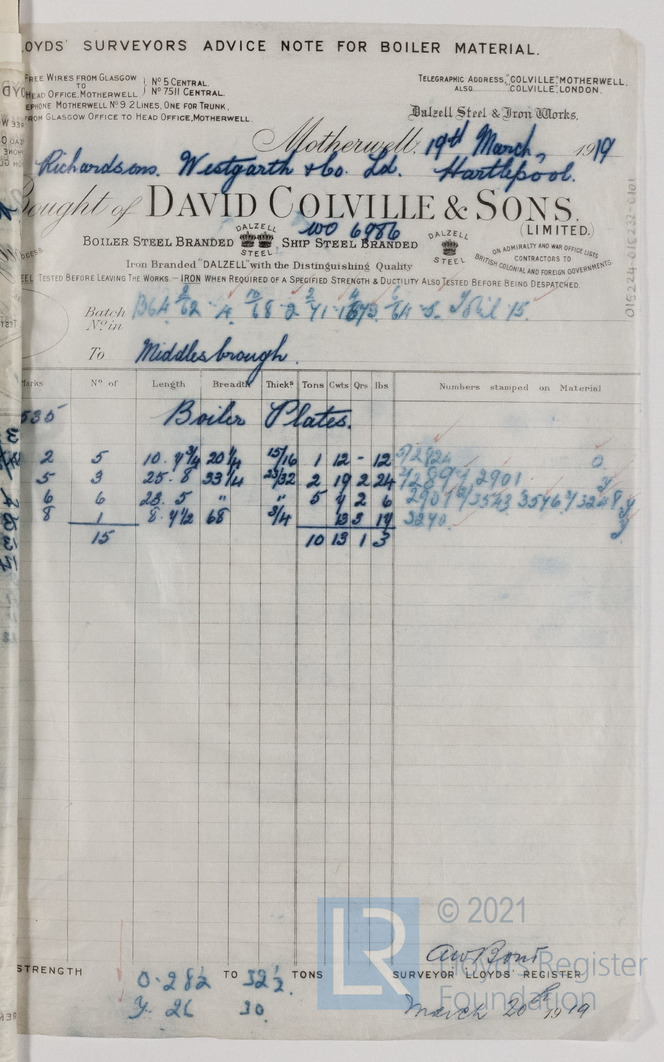 LOYDS' SURVEYORS ADVICE NOTE FOR BOILER MATERIAL.
FREE WIRES FROM GLASGOW TO HEAD OFFICE, MOTHERWELL } Nº 5 CENTRAL. Nº 7511 CENTRAL.
EPHONE MOTHERWELL Nº 9 2 LINES, ONE FOR TRUNK,
FROM GLASGOW OFFICE TO HEAD OFFICE, MOTHERWELL.
TELEGRAPHIC ADDRESS, "COLVILLE," MOTHERWELL.
ALSO "COLVILLE", LONDON.
Dalzell Steel & Iron Works,
Motherwell, 19th March, 1919
Richardsons. Westgarth & Co. Ld. Hartlepool.
ought of DAVID COLVILLE & SONS.
(LIMITED.)
WO 6986
BOILER STEEL BRANDED DALZELL STEEL SHIP STEEL BRANDED DALZELL STEEL
ON ADMIRALTY AND WAR OFFICE LISTS
CONTRACTORS TO
BRITISH COLONIAL AND FOREIGN GOVERNMENTS.
Iron Branded "DALZELL" with the Distinguishing Quality
EEL TESTED BEFORE LEAVING THE WORKS. — IRON WHEN REQUIRED OF A SPECIFIED STRENGTH & DUCTILITY ALSO TESTED BEFORE BEING DESPATCHED.
Batch Nº in
To Middlesbrough.
Marks Nº of Length Breadth Thickˢ Tons Cwts Qrs lbs Numbers stamped on Material
535 Boiler Plates.
2 5 10. 4¾ 20¼ 15/16 1 12 - 12
5 3 25. 8 33¼ 23/32 2 19 2 24 2901
6 6 23. 5 " " 5 7 2 6
8 1 8. 4½ 68 3/4 13 3 17 3240.
15 10 13 1 3
STRENGTH 0. 28½ TO 32½ TONS
Y. 26 30.
SURVEYOR LLOYDS' REGISTER
March 20th 1919
LR
© 2021
Lloyd's Register
Foundation